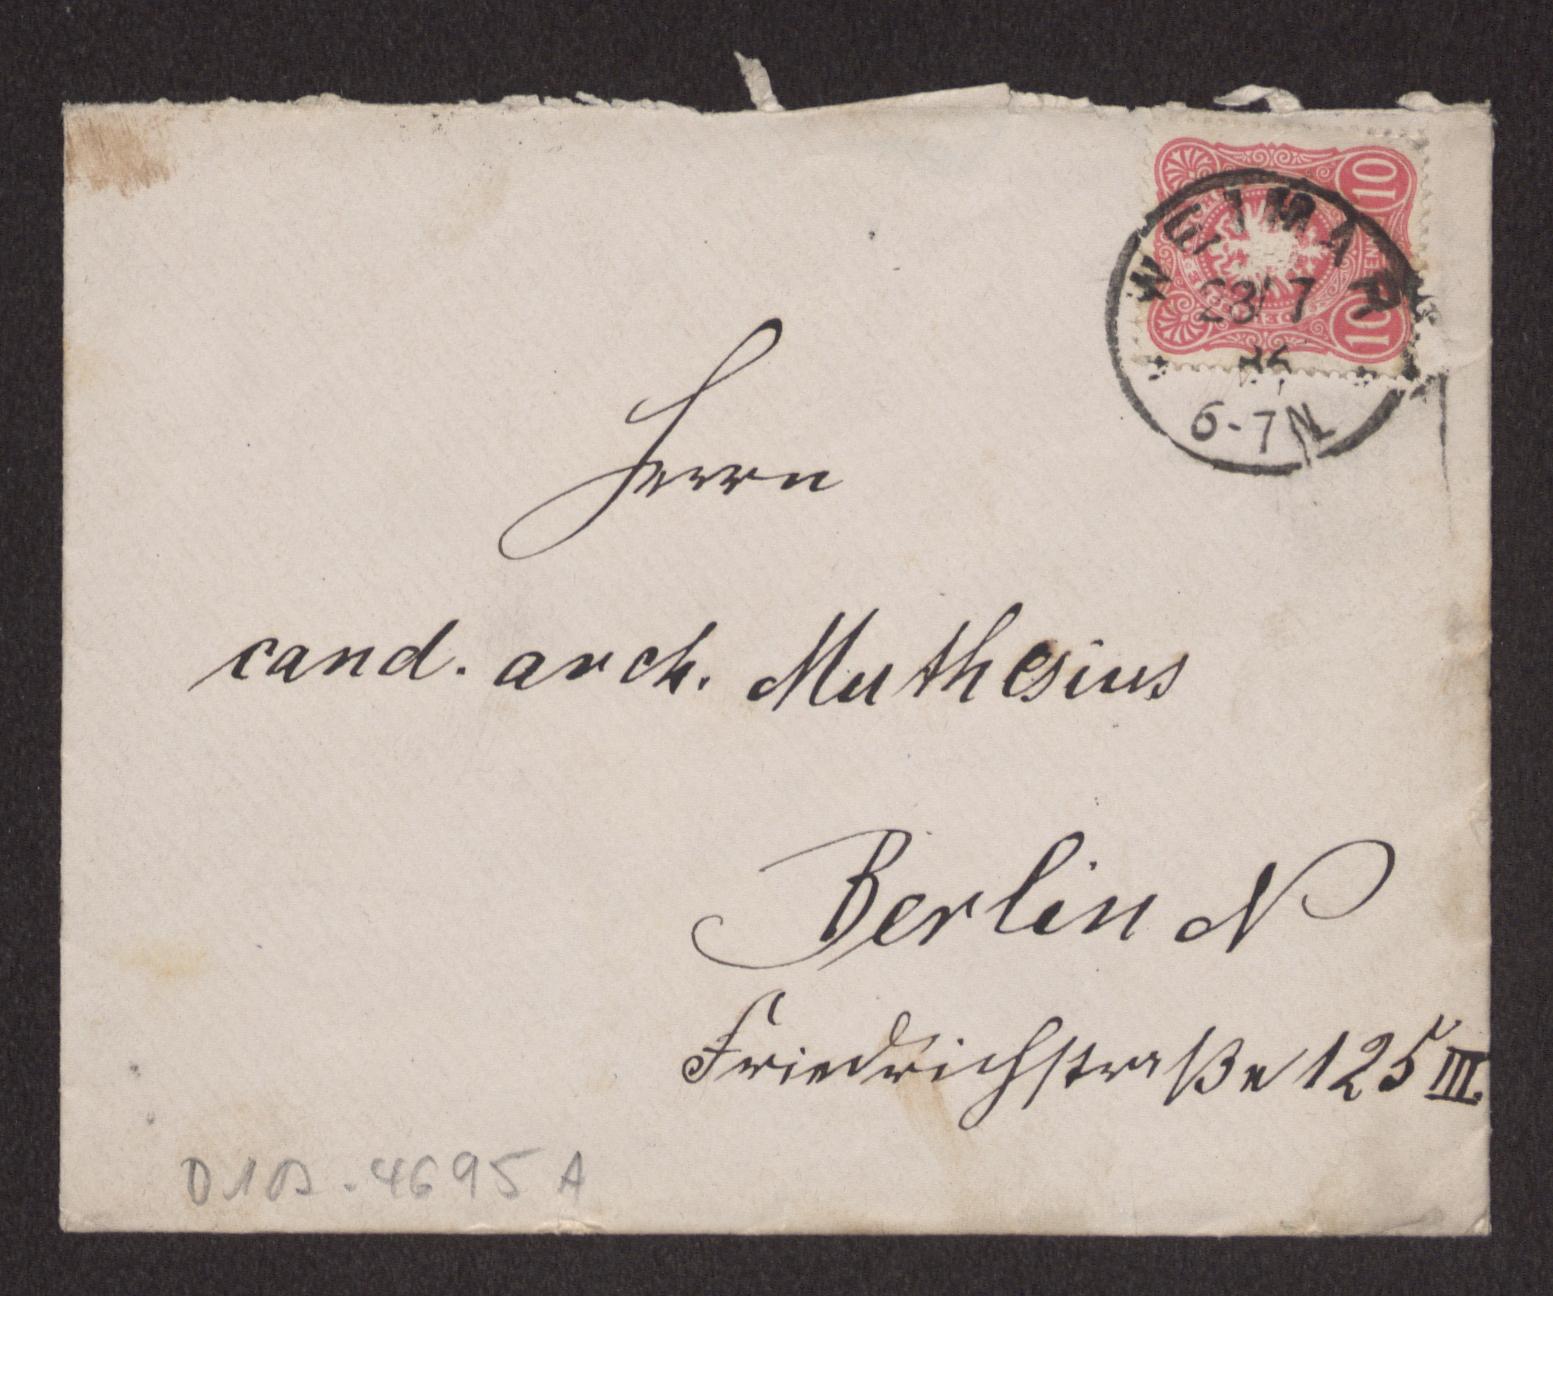 10
WEIMAR
10
6-7N
Herrn
cand. arch. Muthesius
Berlin N
Friedrichstraße 125 III.
4695 A